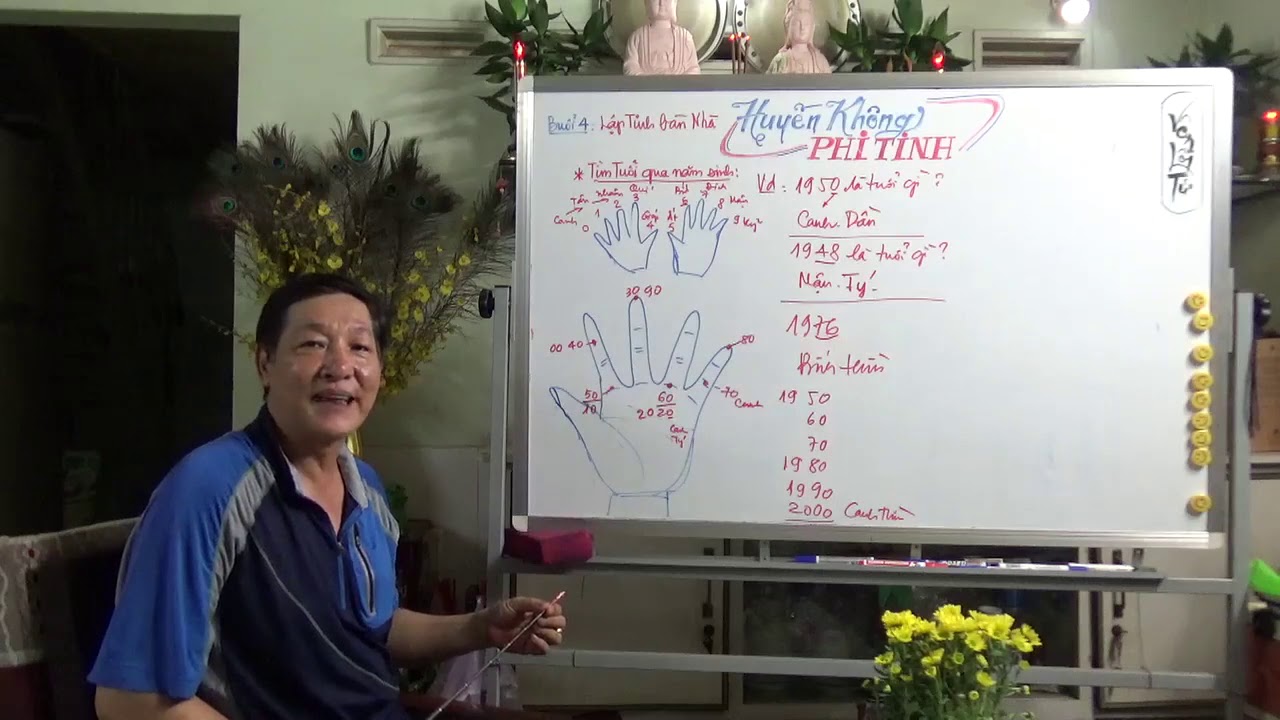 Buổi 4: Lập Tinh Bàn Nhà
Huyền Không
PHI TINH
* Tìm Tuổi qua năm sinh:
Canh Tân Nhâm Quí Giáp Ất Bính Đinh Mậu Kỷ
0 1 2 3 4 5 6 7 8 9
30 90
00 40
80
50
10
20
60
20
70
Canh
Canh
Tý
Vd: 1950 là tuổi gì?
Canh Dần
1948 là tuổi gì?
Mậu Tý
1976
Bính thìn
1950
60
70
1980
1990
2000 Canh Thìn